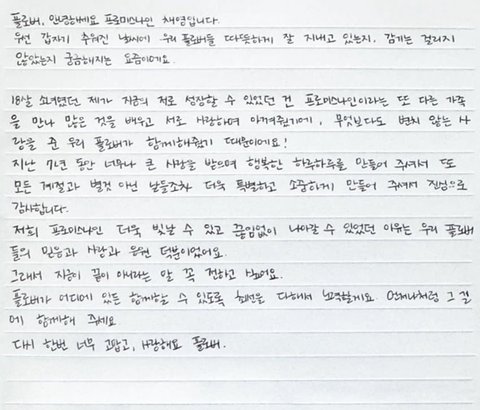 플로버, 안녕하세요 프로미스나인 채영입니다.
우선 갑자기 추워진 날씨에 우리 플로버들 따뜻하게 잘 지내고 있는지, 감기는 걸리지
않았는지 궁금해지는 요즘이에요.
18살 소녀였던 제가 지금의 저로 성장할 수 있었던 건 프로미스나인이라는 또 다른 가족
을 만나 많은 것을 배우고 서로 사랑하며 아껴줬기에, 무엇보다도 변치 않는 사
랑을 준 우리 플로버가 함께해줬기 때문이에요!
지난 7년 동안 너무나 큰 사랑을 받으며 행복한 하루하루를 만들어 주셔서 또
모든 계절과 별것 아닌 날들조차 더욱 특별하고 소중하게 만들어 주셔서 진심으로
감사합니다.
저희 프로미스나인 더욱 빛날 수 있고 끊임없이 나아갈 수 있었던 이유는 우리 플로버
들의 믿음과 사랑과 응원 덕분이었어요.
그래서 지금이 끝이 아니라는 말 꼭 전하고 싶어요.
플로버가 어디에 있든 함께할 수 있도록 최선을 다해서 노력할게요. 언제나처럼 그 길
에 함께해 주세요
다시 한번 너무 고맙고, 사랑해요 플로버.